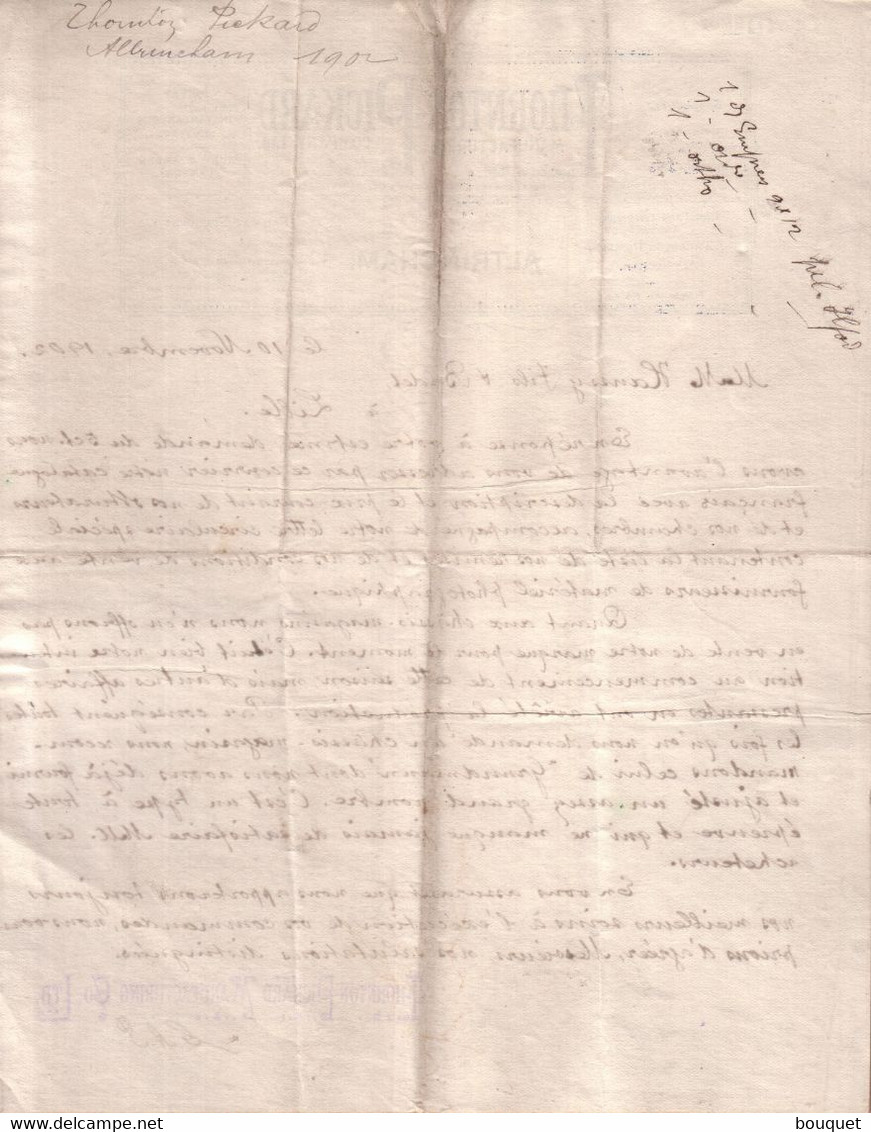 Thornton Pickard
Altrincham 1902
1 -
1 - ortho -
Ilford
THORNTON PICKARD
ALTRINCHAM
le 10 Novembre, 1902.
à Lille.
En réponse à votre estimée demande du 5 ct. nous
avons l'avantage de vous adresser par ce courrier notre catalogue
français avec la description et le prix-courant de nos obturateurs
et de nos chambres, accompagné de notre lettre circulaire spéciale
contenant la liste de nos remises et de nos conditions de vente aux
fournisseurs de matériel photographique.
Quant aux châssis-magasins nous n'en offrons pas
en vente de notre marque pour le moment. C'était bien notre inten-
tion au commencement de cette saison mais d'autres affaires
pressantes en ont arrêté la fabrication. Par conséquent toutes
les fois qu'on nous demande un châssis-magasin, nous recom-
mandons celui de dont nous avons déjà fourni
et ajusté un assez grand nombre. C'est un type à toute
épreuve et qui ne manque jamais de satisfaire MM. les
acheteurs.
En vous assurant que nous apporterons toujours
nos meilleurs soins à l'exécution de vos commandes, nous vous
prions d'agréer, Messieurs, nos salutations distinguées.
THORNTON PICKARD MANUFACTURING CO. LTD.
bouquet